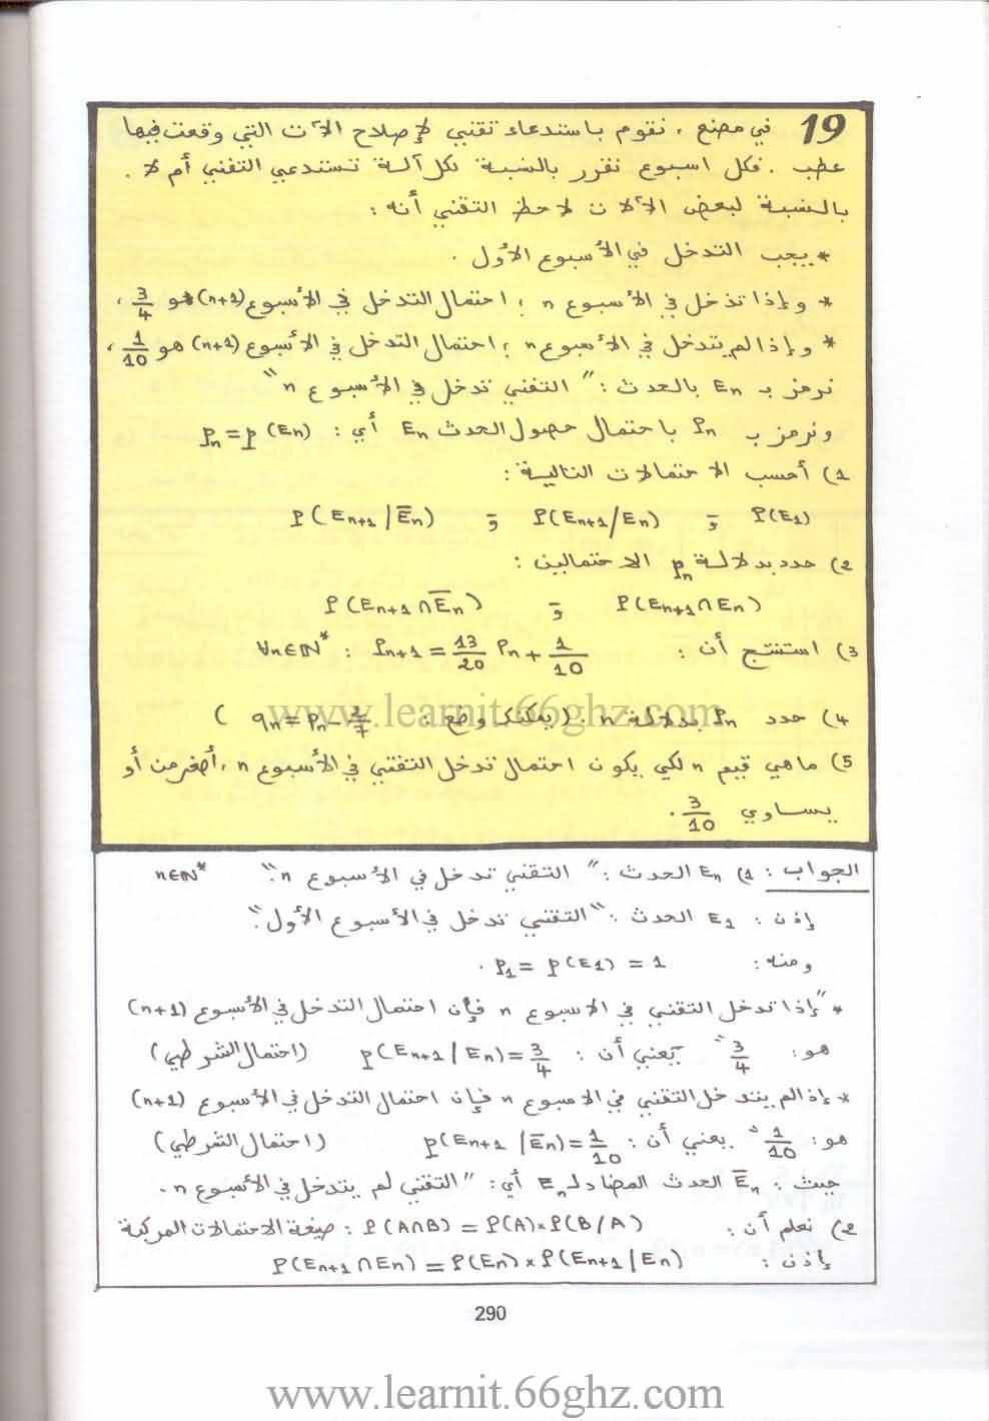 19 في مصنع ، نقوم باستدعاء تقني لإصلاح الآلات التي وقعت فيها
عطب . فكل اسبوع نقرر بالنسبة لكل آلة تستدعي التقني أم لا .
بالنسبة لبعض الآلات لاحظ التقني أنه :
* يجب التدخل في الأسبوع الأول .
* وإذا تدخل في الأسبوع n ؛ احتمال التدخل في الأسبوع (n+1) هو 3/4 ،
* وإذا لم يتدخل في الأسبوع n ؛ احتمال التدخل في الأسبوع (n+1) هو 1/10 ،
نرمز بـ En بالحدث : " التقني تدخل في الأسبوع n "
ونرمز بـ Pn باحتمال حصول الحدث En أي : Pn = p(En)
1) أحسب الاحتمالات التالية :
P(E1) و P(En+1/En) و P(En+1|E̅n)
2) حدد بدلالة Pn الاحتمالين :
P(En+1∩En) و P(En+1∩E̅n)
3) استنتج أن : ∀n∈ℕ* : Pn+1 = 13/20 Pn + 1/10
4) حدد Pn بدلالة n . (يمكنك وضع : qn = Pn - 2/7 )
www.learnit.66ghz.com
5) ماهي قيم n لكي يكون احتمال تدخل التقني في الأسبوع n ، أصغر من أو
يساوي 3/10 .
الجواب : 1) En الحدث : " التقني تدخل في الأسبوع n " n∈ℕ*
إذن : E1 الحدث : " التقني تدخل في الأسبوع الأول "
ومنه : P1 = p(E1) = 1 .
* "إذا تدخل التقني في الاسبوع n فإن احتمال التدخل في الأسبوع (n+1)
هو : 3/4 " يعني أن : p(En+1|En) = 3/4 (احتمال الشرطي)
* إذا لم يتدخل التقني في الاسبوع n فإن احتمال التدخل في الأسبوع (n+1)
هو : 1/10 " يعني أن : p(En+1|E̅n) = 1/10 (احتمال الشرطي)
حيث : E̅n الحدث المضاد لـ En أي : " التقني لم يتدخل في الأسبوع n .
2) نعلم أن : P(A∩B) = P(A)×P(B/A) : صيغة الاحتمالات المركبة
إذن : P(En+1∩En) = P(En)×P(En+1|En)
290
www.learnit.66ghz.com